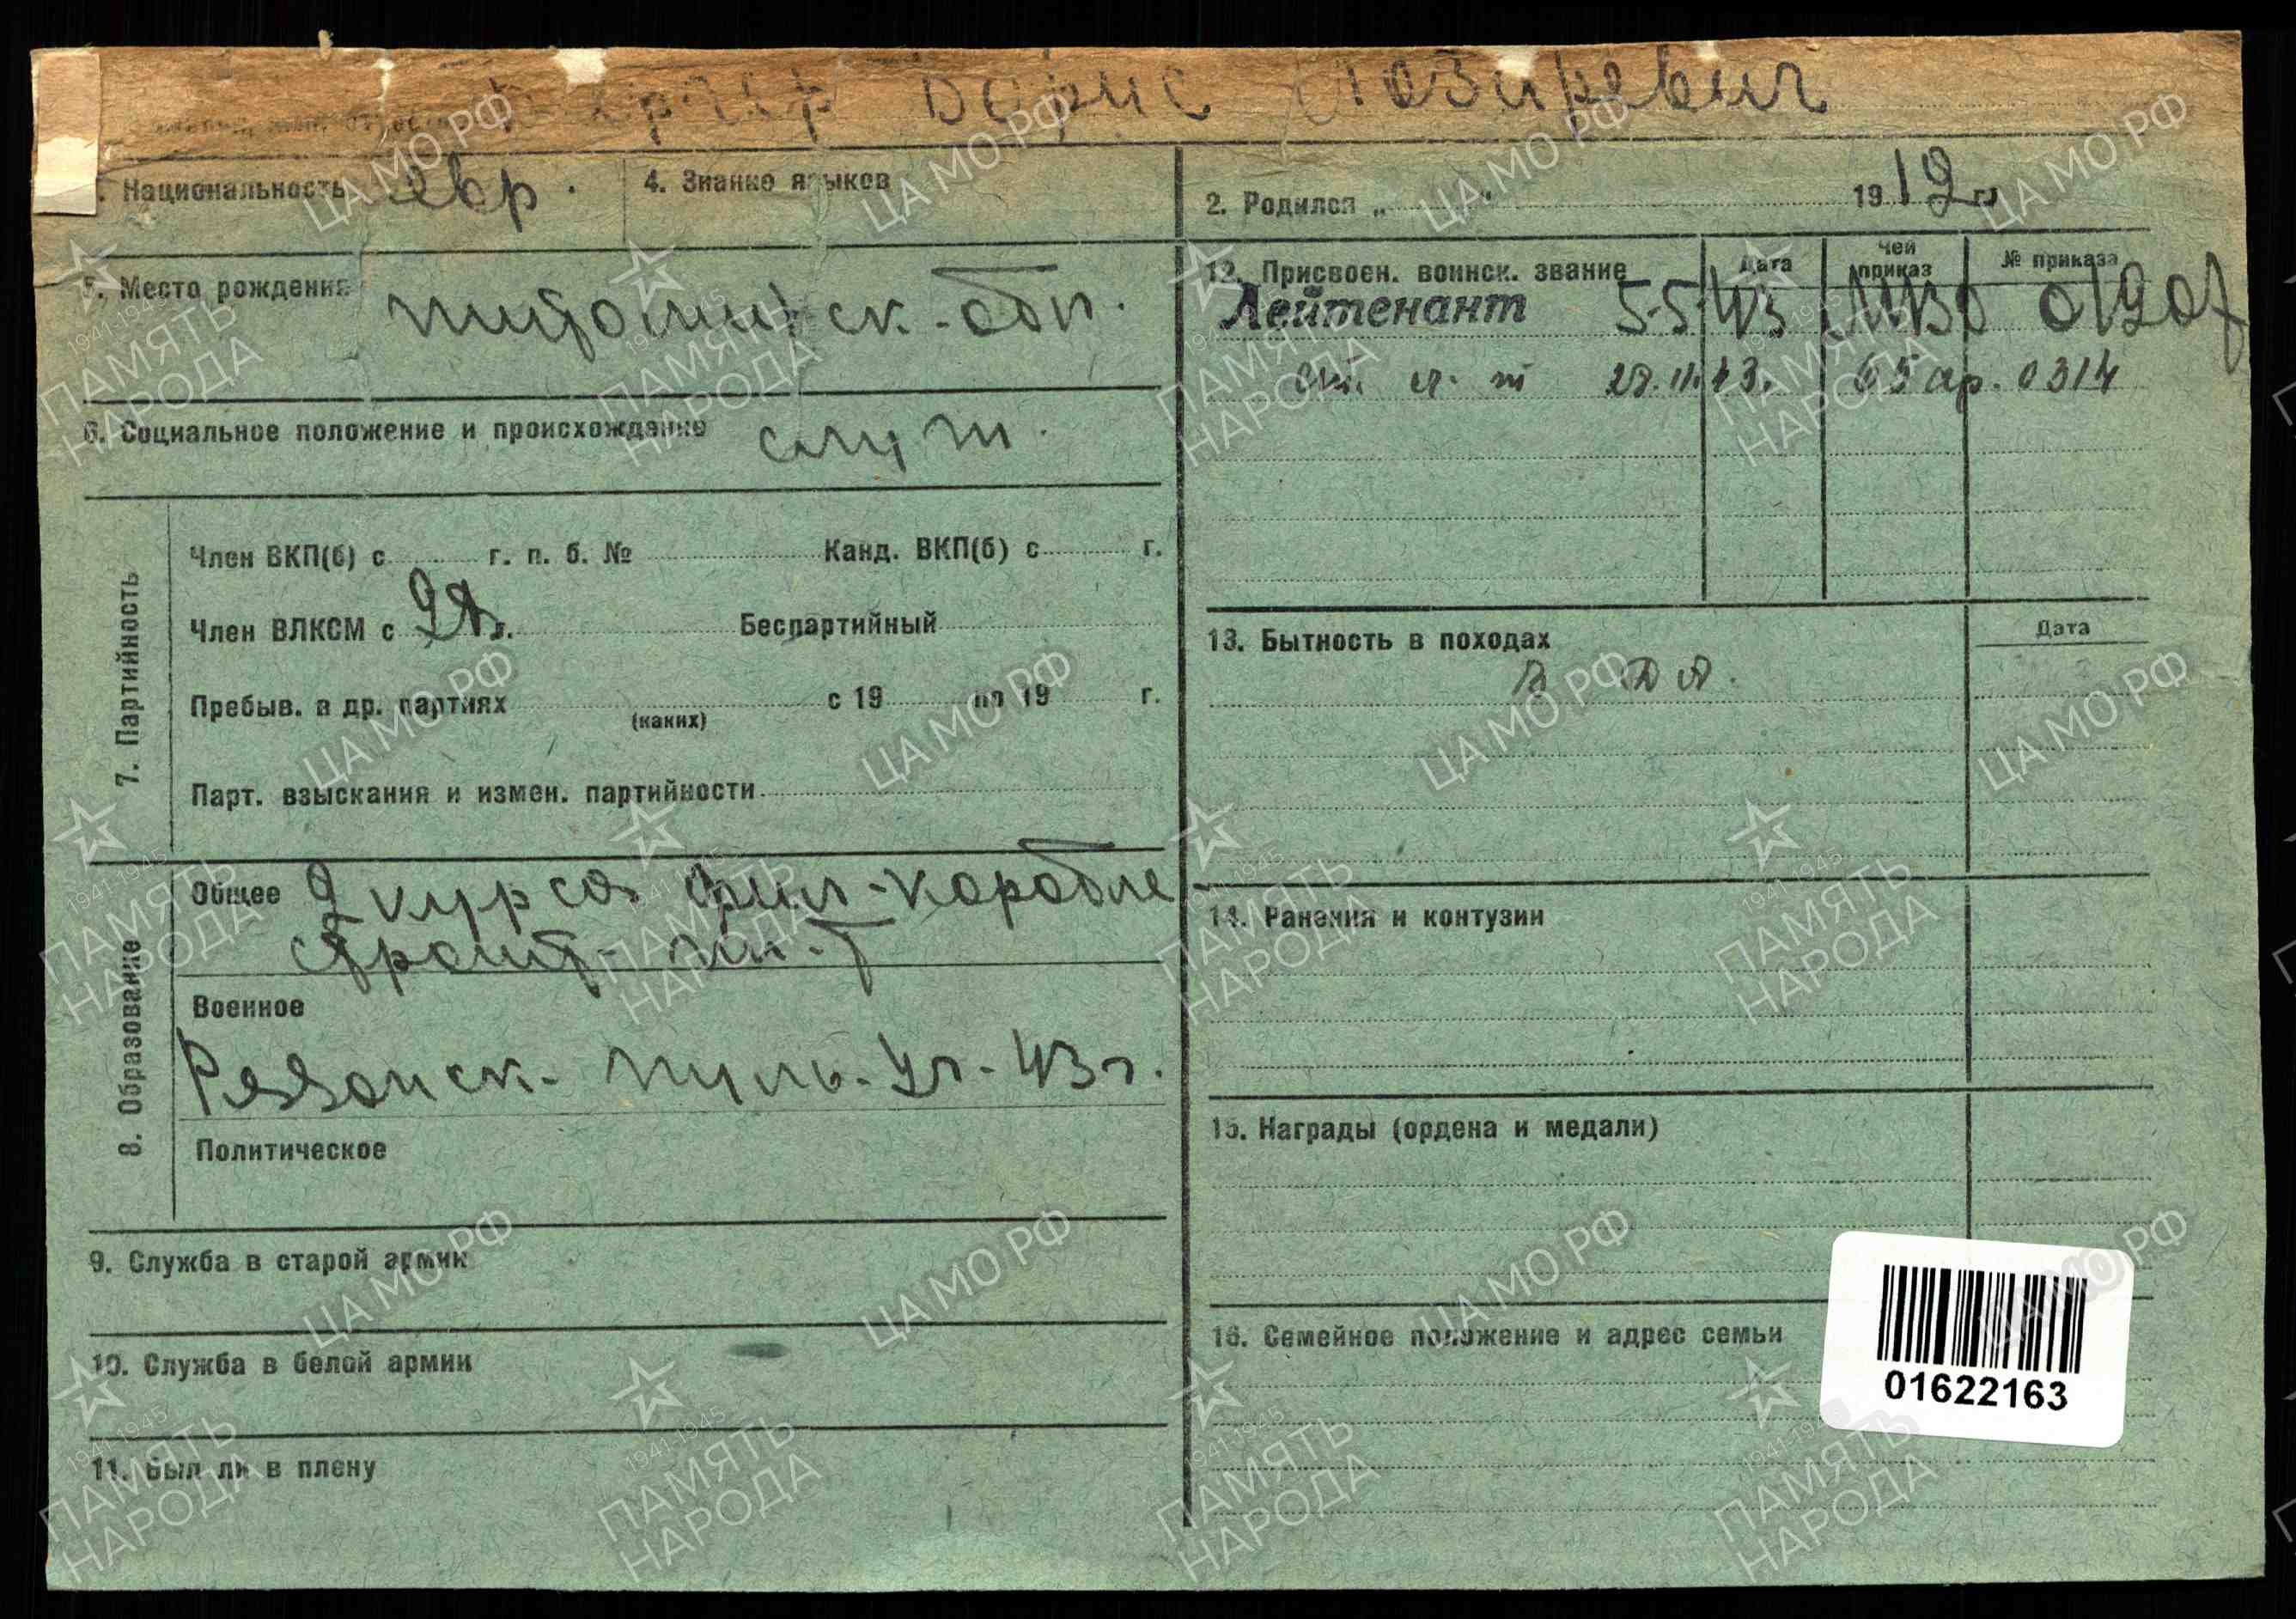 Борис Лазаревич
Национальность евр.
4. Знание языков
2. Родился „ “ 1919 г.
5. Место рождения Житомирск. обл.
12. Присвоен. воинск. звание Дата Чей приказ № приказа
Лейтенант 5-5-43 МВО 01207
ст. л-т 28.11.43. 65 ар. 0314
6. Социальное положение и происхождение служ.
7. Партийность
Член ВКП(б) с г. п. б. № Канд. ВКП(б) с г.
Член ВЛКСМ с г. Беспартийный
Пребыв. в др. партиях (каких) с 19 по 19 г.
Парт. взыскания и измен. партийности
13. Бытность в походах Дата
8. Образование
Общее 2 курса фил. корабле
строит. ин-т
Военное
Рязанск. пуль. уч. 43 г.
Политическое
14. Ранения и контузии
15. Награды (ордена и медали)
9. Служба в старой армии
10. Служба в белой армии
11. Был ли в плену
16. Семейное положение и адрес семьи
01622163
ЦА МО РФ
1941-1945
ПАМЯТЬ
НАРОДА